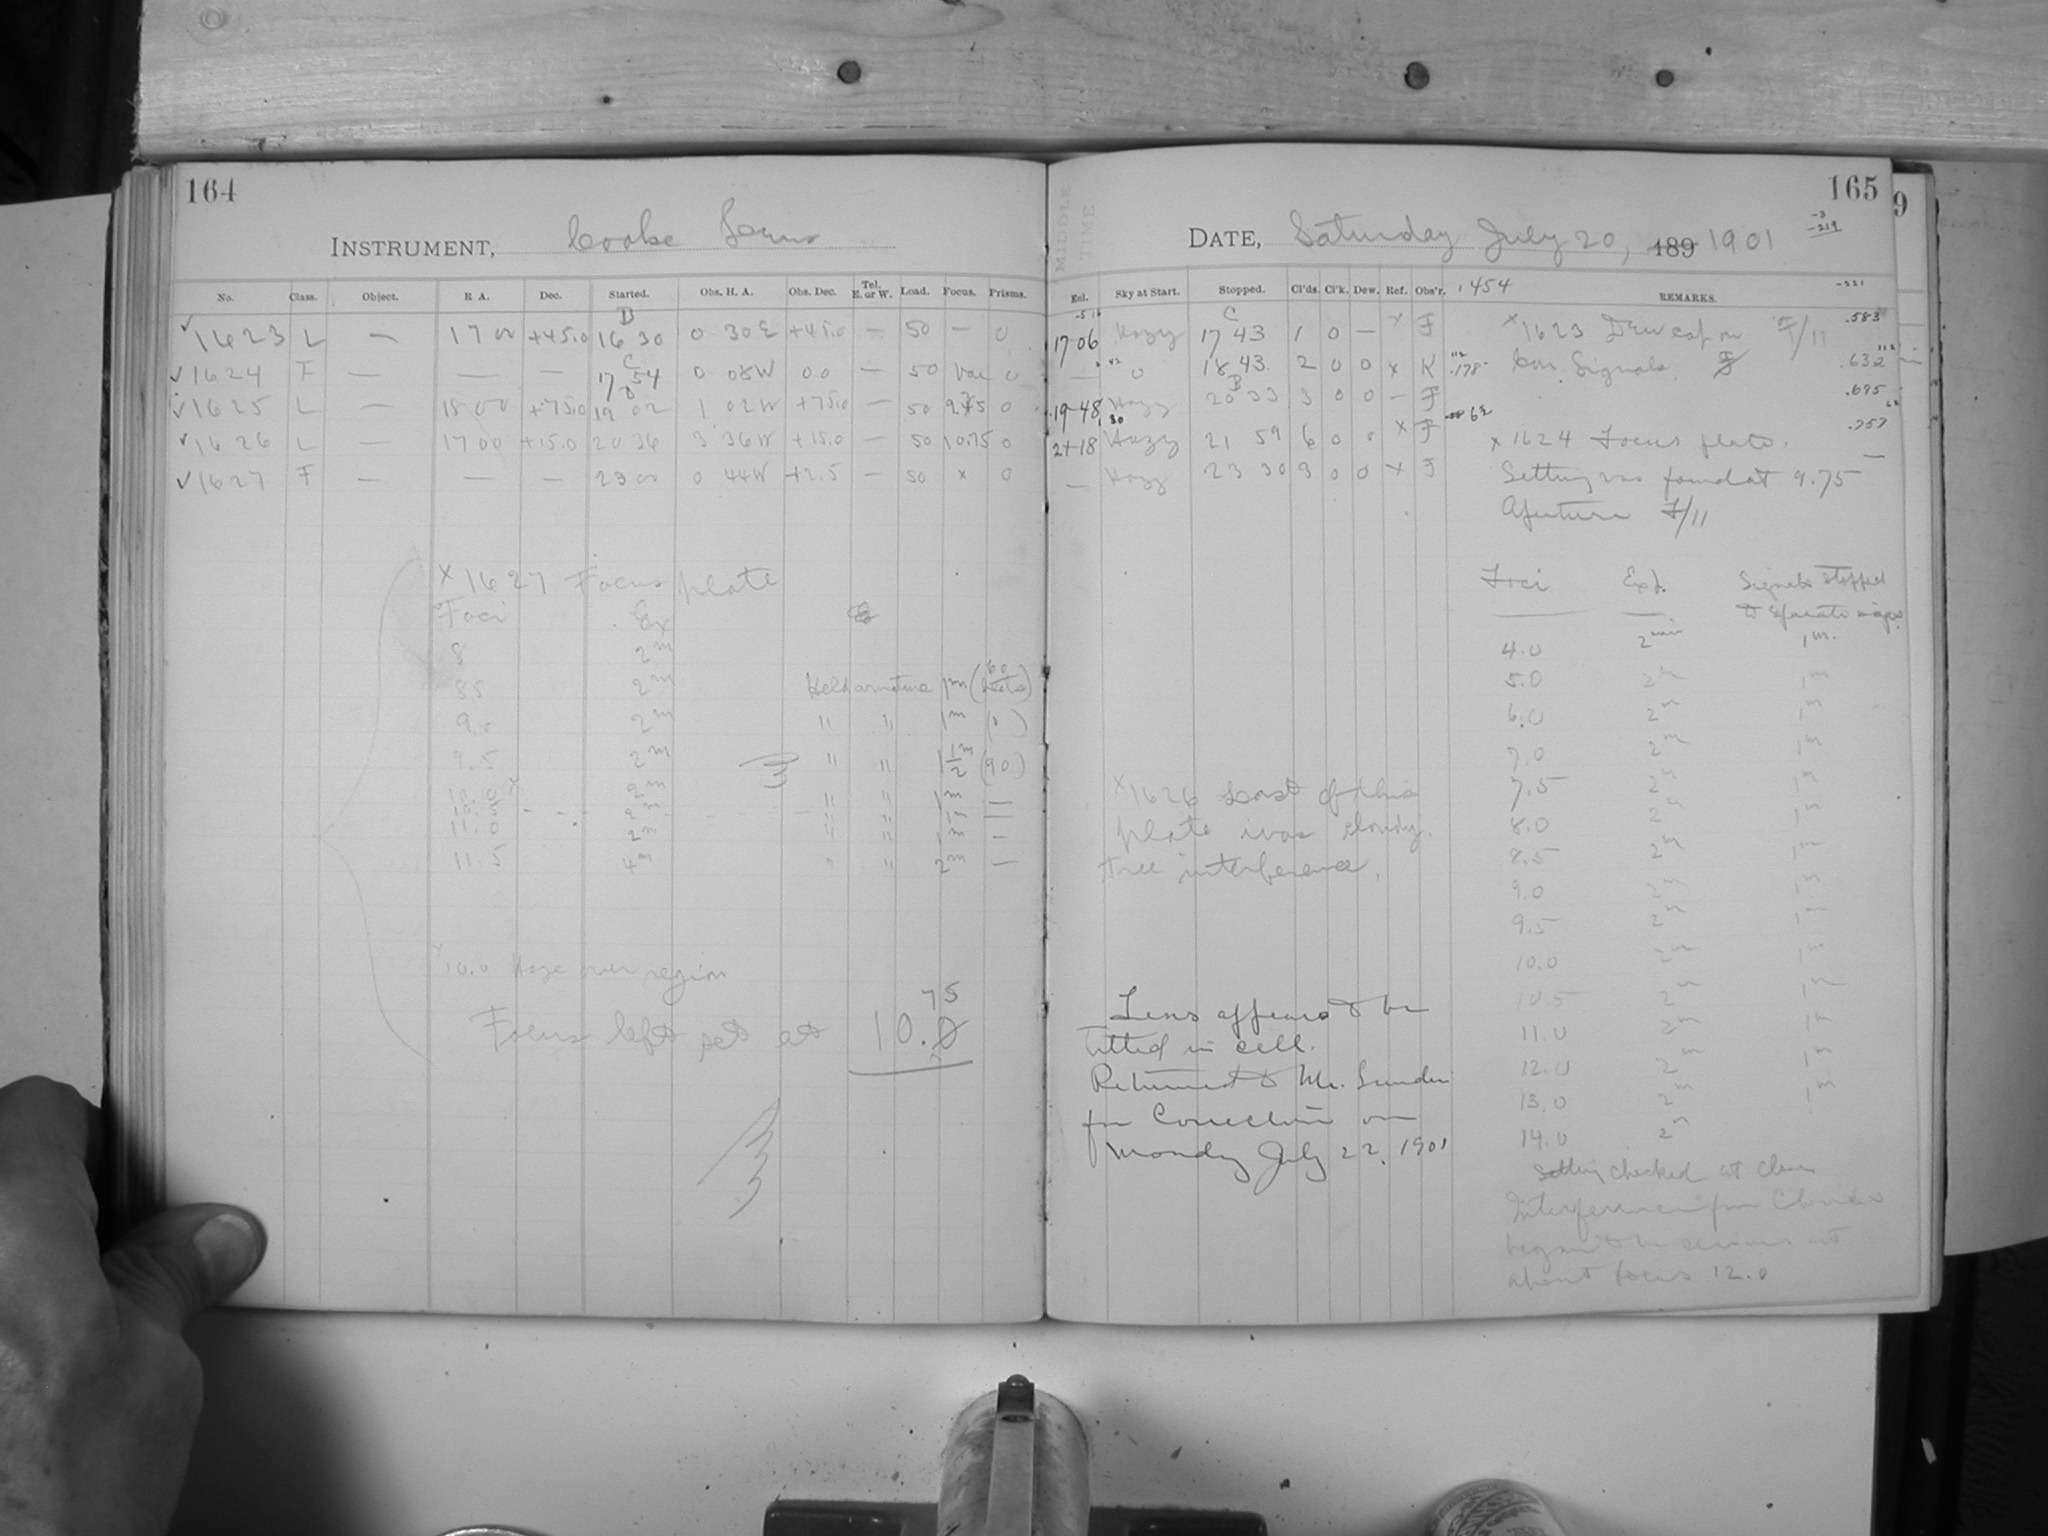 164
INSTRUMENT, Cooke Lens
No. Class. Object. R A. Dec. Started. Obs. H. A. Obs. Dec. Tel. E. or W. Load. Focus. Prisms.
✓1623 L — 17 00 +45.0 B 16 30 0 30E +45.0 — 50 — 0
✓1624 F — — — C 17 54 0 08W 0.0 — 50 Var 0
✓1625 L — 18 00 +75.0 B 19 02 1 02W +75.0 — 50 9.75 0
✓1626 L — 17 00 +15.0 20 36 3 36W +15.0 — 50 10.75 0
✓1627 F — — — 23 00 0 44W +2.5 — 50 x 0
x 1627 Focus plate
Foci Ex
8 2m
8.5 2m Held armature 1m (60 beats)
9.0 2m " " 1m (")
9.5 2m " " 1 1/2m (90)
10.0x 2m " " 1m —
10.5 2m " " 1m —
11.0 2m " " 1m —
11.5 4m " " 2m —
x10.0 Haze over region
Focus left set at 10.75
165
MIDDLE TIME
DATE, Saturday July 20, 189 1901
-3
-219
-221
Exl. Sky at Start. Stopped. Cl'ds. Cl'k. Dew. Ref. Obs'r. .454 REMARKS.
17-06 Hazy C 17 43 1 0 — x F x1623 Dew cap on F/11 .583
— 0 18 43 2 0 0 x K .178 Con. Signals. .632
19-48 Hazy B 20 33 3 0 0 — F .695
21-18 Hazy 21 59 6 0 0 x F x 1624 Focus plate. .757
— Hazy 23 30 3 0 0 x F Setting was found at 9.75 —
Aperture F/11
Foci Exp. Signals stopped
to separate images
4.0 2min 1m.
5.0 2m 1m
6.0 2m 1m
7.0 2m 1m
7.5 2m 1m
8.0 2m 1m
8.5 2m 1m
9.0 2m 1m
9.5 2m 1m
10.0 2m 1m
10.5 2m 1m
11.0 2m 1m
12.0 2m 1m
13.0 2m 1m
14.0 2m
Setting checked at close
Interference from Clouds
began to be serious at
about focus 12.0
x1626 Last of this
plate was cloudy.
Tree interference.
Lens appears to be
tilted in cell.
Returned to Mr. Lundin
for Correction on
Monday July 22, 1901